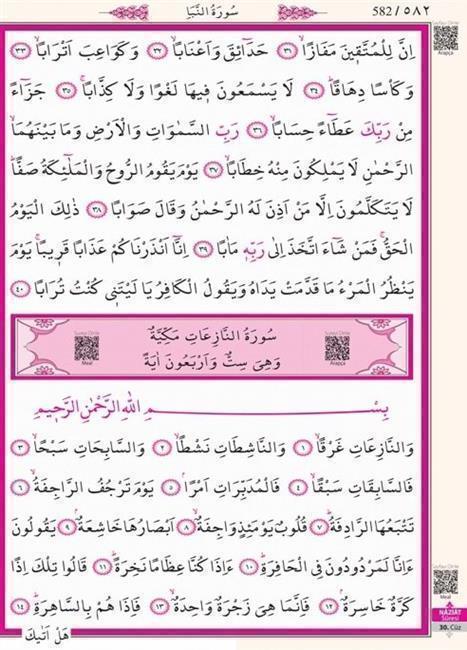 سُورَةُ النَّبَأِ
582/٥٨٢
اِنَّ لِلْمُتَّقٖينَ مَفَازًاۙ ﴿٣١﴾ حَدَٓائِقَ وَاَعْنَابًاۙ ﴿٣٢﴾ وَكَوَاعِبَ اَتْرَابًاۙ ﴿٣٣﴾
وَكَاْسًا دِهَاقًاۜ ﴿٣٤﴾ لَا يَسْمَعُونَ فٖيهَا لَغْوًا وَلَا كِذَّابًاۚ ﴿٣٥﴾ جَزَٓاءً
مِنْ رَبِّكَ عَطَٓاءً حِسَابًاۙ ﴿٣٦﴾ رَبِّ السَّمٰوَاتِ وَالْاَرْضِ وَمَا بَيْنَهُمَا
الرَّحْمٰنِ لَا يَمْلِكُونَ مِنْهُ خِطَابًاۚ ﴿٣٧﴾ يَوْمَ يَقُومُ الرُّوحُ وَالْمَلٰٓئِكَةُ صَفًّاۜ
لَا يَتَكَلَّمُونَ اِلَّا مَنْ اَذِنَ لَهُ الرَّحْمٰنُ وَقَالَ صَوَابًا ﴿٣٨﴾ ذٰلِكَ الْيَوْمُ
الْحَقُّۚ فَمَنْ شَٓاءَ اتَّخَذَ اِلٰى رَبِّهٖ مَاٰبًا ﴿٣٩﴾ اِنَّٓا اَنْذَرْنَاكُمْ عَذَابًا قَرٖيبًاۚ يَوْمَ
يَنْظُرُ الْمَرْءُ مَا قَدَّمَتْ يَدَاهُ وَيَقُولُ الْكَافِرُ يَا لَيْتَنٖي كُنْتُ تُرَابًا ﴿٤٠﴾
سُورَةُ النَّازِعَاتِ مَكِّيَّةٌ
وَهِيَ سِتٌّ وَاَرْبَعُونَ اٰيَةً
Meal
Arapça
بِسْمِ اللّٰهِ الرَّحْمٰنِ الرَّحٖيمِ
وَالنَّازِعَاتِ غَرْقًاۙ ﴿١﴾ وَالنَّاشِطَاتِ نَشْطًاۙ ﴿٢﴾ وَالسَّابِحَاتِ سَبْحًاۙ ﴿٣﴾
فَالسَّابِقَاتِ سَبْقًاۙ ﴿٤﴾ فَالْمُدَبِّرَاتِ اَمْرًاۢ ﴿٥﴾ يَوْمَ تَرْجُفُ الرَّاجِفَةُۙ ﴿٦﴾
تَتْبَعُهَا الرَّادِفَةُۜ ﴿٧﴾ قُلُوبٌ يَوْمَئِذٍ وَاجِفَةٌۙ ﴿٨﴾ اَبْصَارُهَا خَاشِعَةٌۢ ﴿٩﴾ يَقُولُونَ
ءَاِنَّا لَمَرْدُودُونَ فِي الْحَافِرَةِۜ ﴿١٠﴾ ءَاِذَا كُنَّا عِظَامًا نَخِرَةًۜ ﴿١١﴾ قَالُوا تِلْكَ اِذًا
كَرَّةٌ خَاسِرَةٌۢ ﴿١٢﴾ فَاِنَّمَا هِيَ زَجْرَةٌ وَاحِدَةٌۙ ﴿١٣﴾ فَاِذَا هُمْ بِالسَّاهِرَةِۜ ﴿١٤﴾
هَلْ اَتٰيكَ
Arapça
Meal
NÂZİÂT
Sûresi
30. Cüz